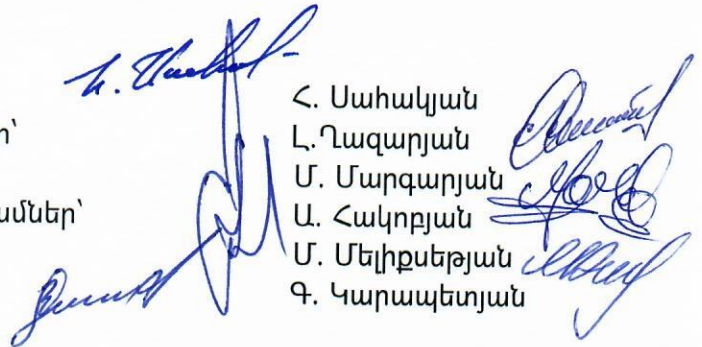 Հ. Սահակյան
ի՝ Լ.Ղազարյան
Մ. Մարգարյան
ամներ՝ Ա. Հակոբյան
Մ. Մելիքսեթյան
Գ. Կարապետյան